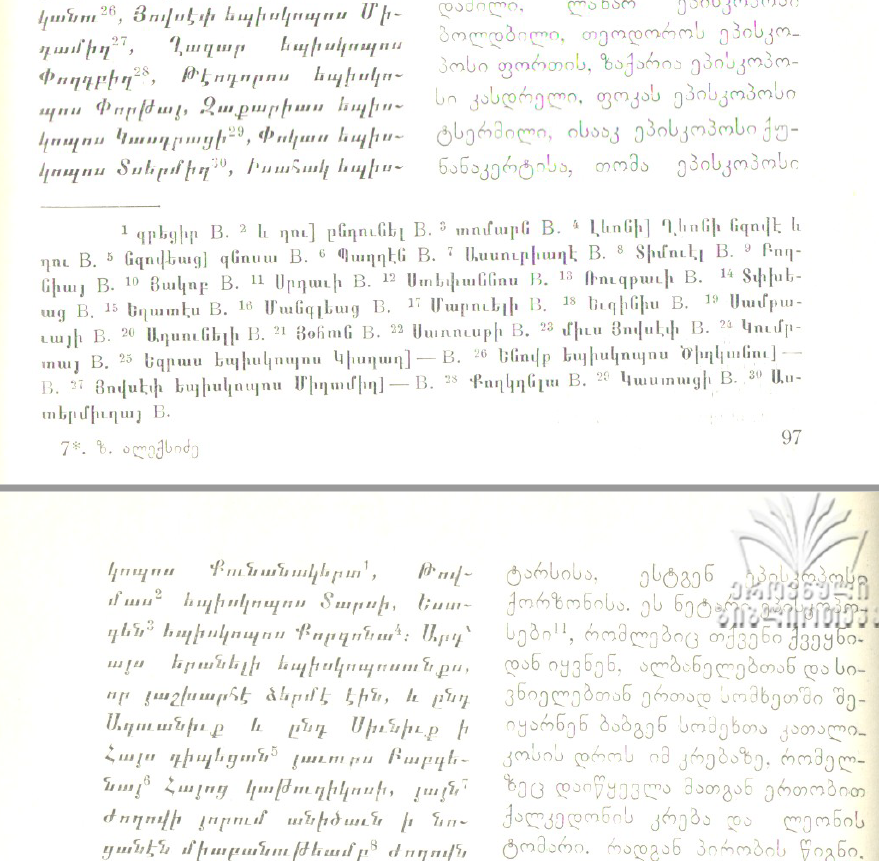 կանու²⁶, Յովսէփ եպիսկոպոս Մի-
դամիդ²⁷, Ղազար եպիսկոպոս
Փողդբիդ²⁸, Թէոդորոս եպիսկո-
պոս Փորթայ, Զաքարիաս եպիս-
կոպոս Կասդրացի²⁹, Փոկաս եպիս-
կոպոս Տսերմիդ³⁰, Իսահակ եպիս-
ბოლდბილი, თეოდოროს ეპისკო-
პოსი ფორთის, ზაქარია ეპისკოპო-
სი კასდრელი, ფოკას ეპისკოპოსი
ტსერმილი, ისააკ ეპისკოპოსი ქუ-
ნანაკერტისა, თომა ეპისკოპოსი
1 գրեցիր B. 2 և դու] ընդունել B. 3 տոմարն B. 4 Լևոնի] Ղևոնի նզովէ և
դու B. 5 նզովեաց] գնոսա B. 6 Պաղդէն B. 7 Ասսուրիադէ B. 8 Տիմուէլ B. 9 Բող-
նիայ B. 10 Յակոբ B. 11 Արդաւի B. 12 Ստեփաննոս B. 13 Ռուզբաւի B. 14 Տփխե-
աց B. 15 Եղատէս B. 16 Մանգլեաց B. 17 Մարուելի B. 18 Եւգինիս B. 19 Սամթա-
ւայի B. 20 Ադսունելի B. 21 Յօհան B. 22 Սառուսթի B. 23 միւս Յովսէփ B. 24 Կումր-
տայ B. 25 Եզրաս եպիսկոպոս Կիսդադ] — B. 26 Ենովք եպիսկոպոս Ծիղկանու] —
B. 27 Յովսէփ եպիսկոպոս Միդամիդ] — B. 28 Քողկդնլա B. 29 Կաստացի B. 30 Աս-
տերմիւղայ B.
7*. ზ. ალექსიძე
97
կոպոս Քունանակերտ¹, Թով-
մաս² եպիսկոպոս Տարսի, Եստ-
գեն³ եպիսկոպոս Քորզոնա⁴: Արդ՝
այս երանելի եպիսկոպոսունքս,
որ յաշխարհէ ձերմէ էին, և ընդ
Աղուանիւք և ընդ Սիւնիւք ի
Հայս դիպեցան⁵ յաւուրս Բաբգե-
նայ⁶ Հայոց կաթուղիկոսի, յայն⁷
ժողովի յորում անիծաւն ի նո-
ցանէն միաբանութեամբ⁸ ժողովն
ტარსისა, ესტგენ ეპისკოპოსი
ქორზონისა. ეს ნეტარი ეპისკოპო-
სები¹¹, რომლებიც თქვენი ქვეყნი-
დან იყვნენ, ალბანელებთან და სი-
ვნიელებთან ერთად სომხეთში შე-
იყარნენ ბაბგენ სომეხთა კათალი-
კოსის დროს იმ კრებაზე, რომელ-
ზეც დაიწყევლა მათგან ერთობით
ქალკედონის კრება და ლეონის
ტომარი. რადგან პირობის წიგნი,
ეროვნული
ბიბლიოთეკა